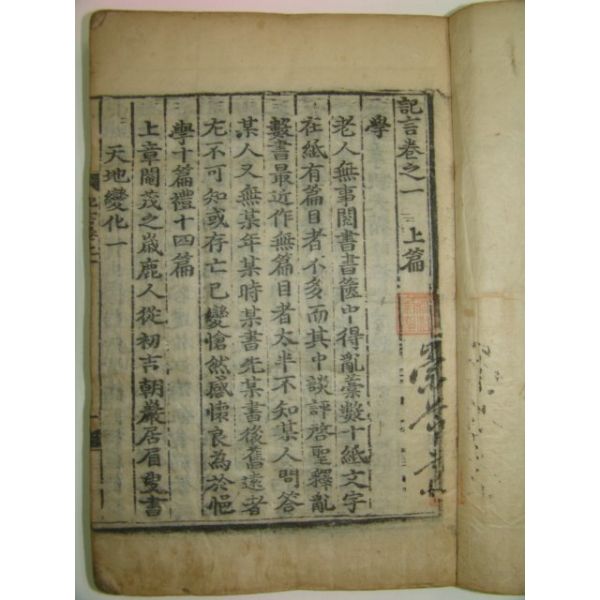 記言卷之一 上篇
學
老人無事閱書書篋中得亂藁數十紙文字
在紙有篇目者不多而其中談評啓聖釋亂
數書最近作無篇目者太半不知某人問答
某人又無某年某時某書先某書後舊遠者
尤不可知或存亡已變愴然感懷良爲於悒
學十篇禮十四篇
上章閹茂之歲鹿人從初吉朝巖居眉叟書
天地變化一